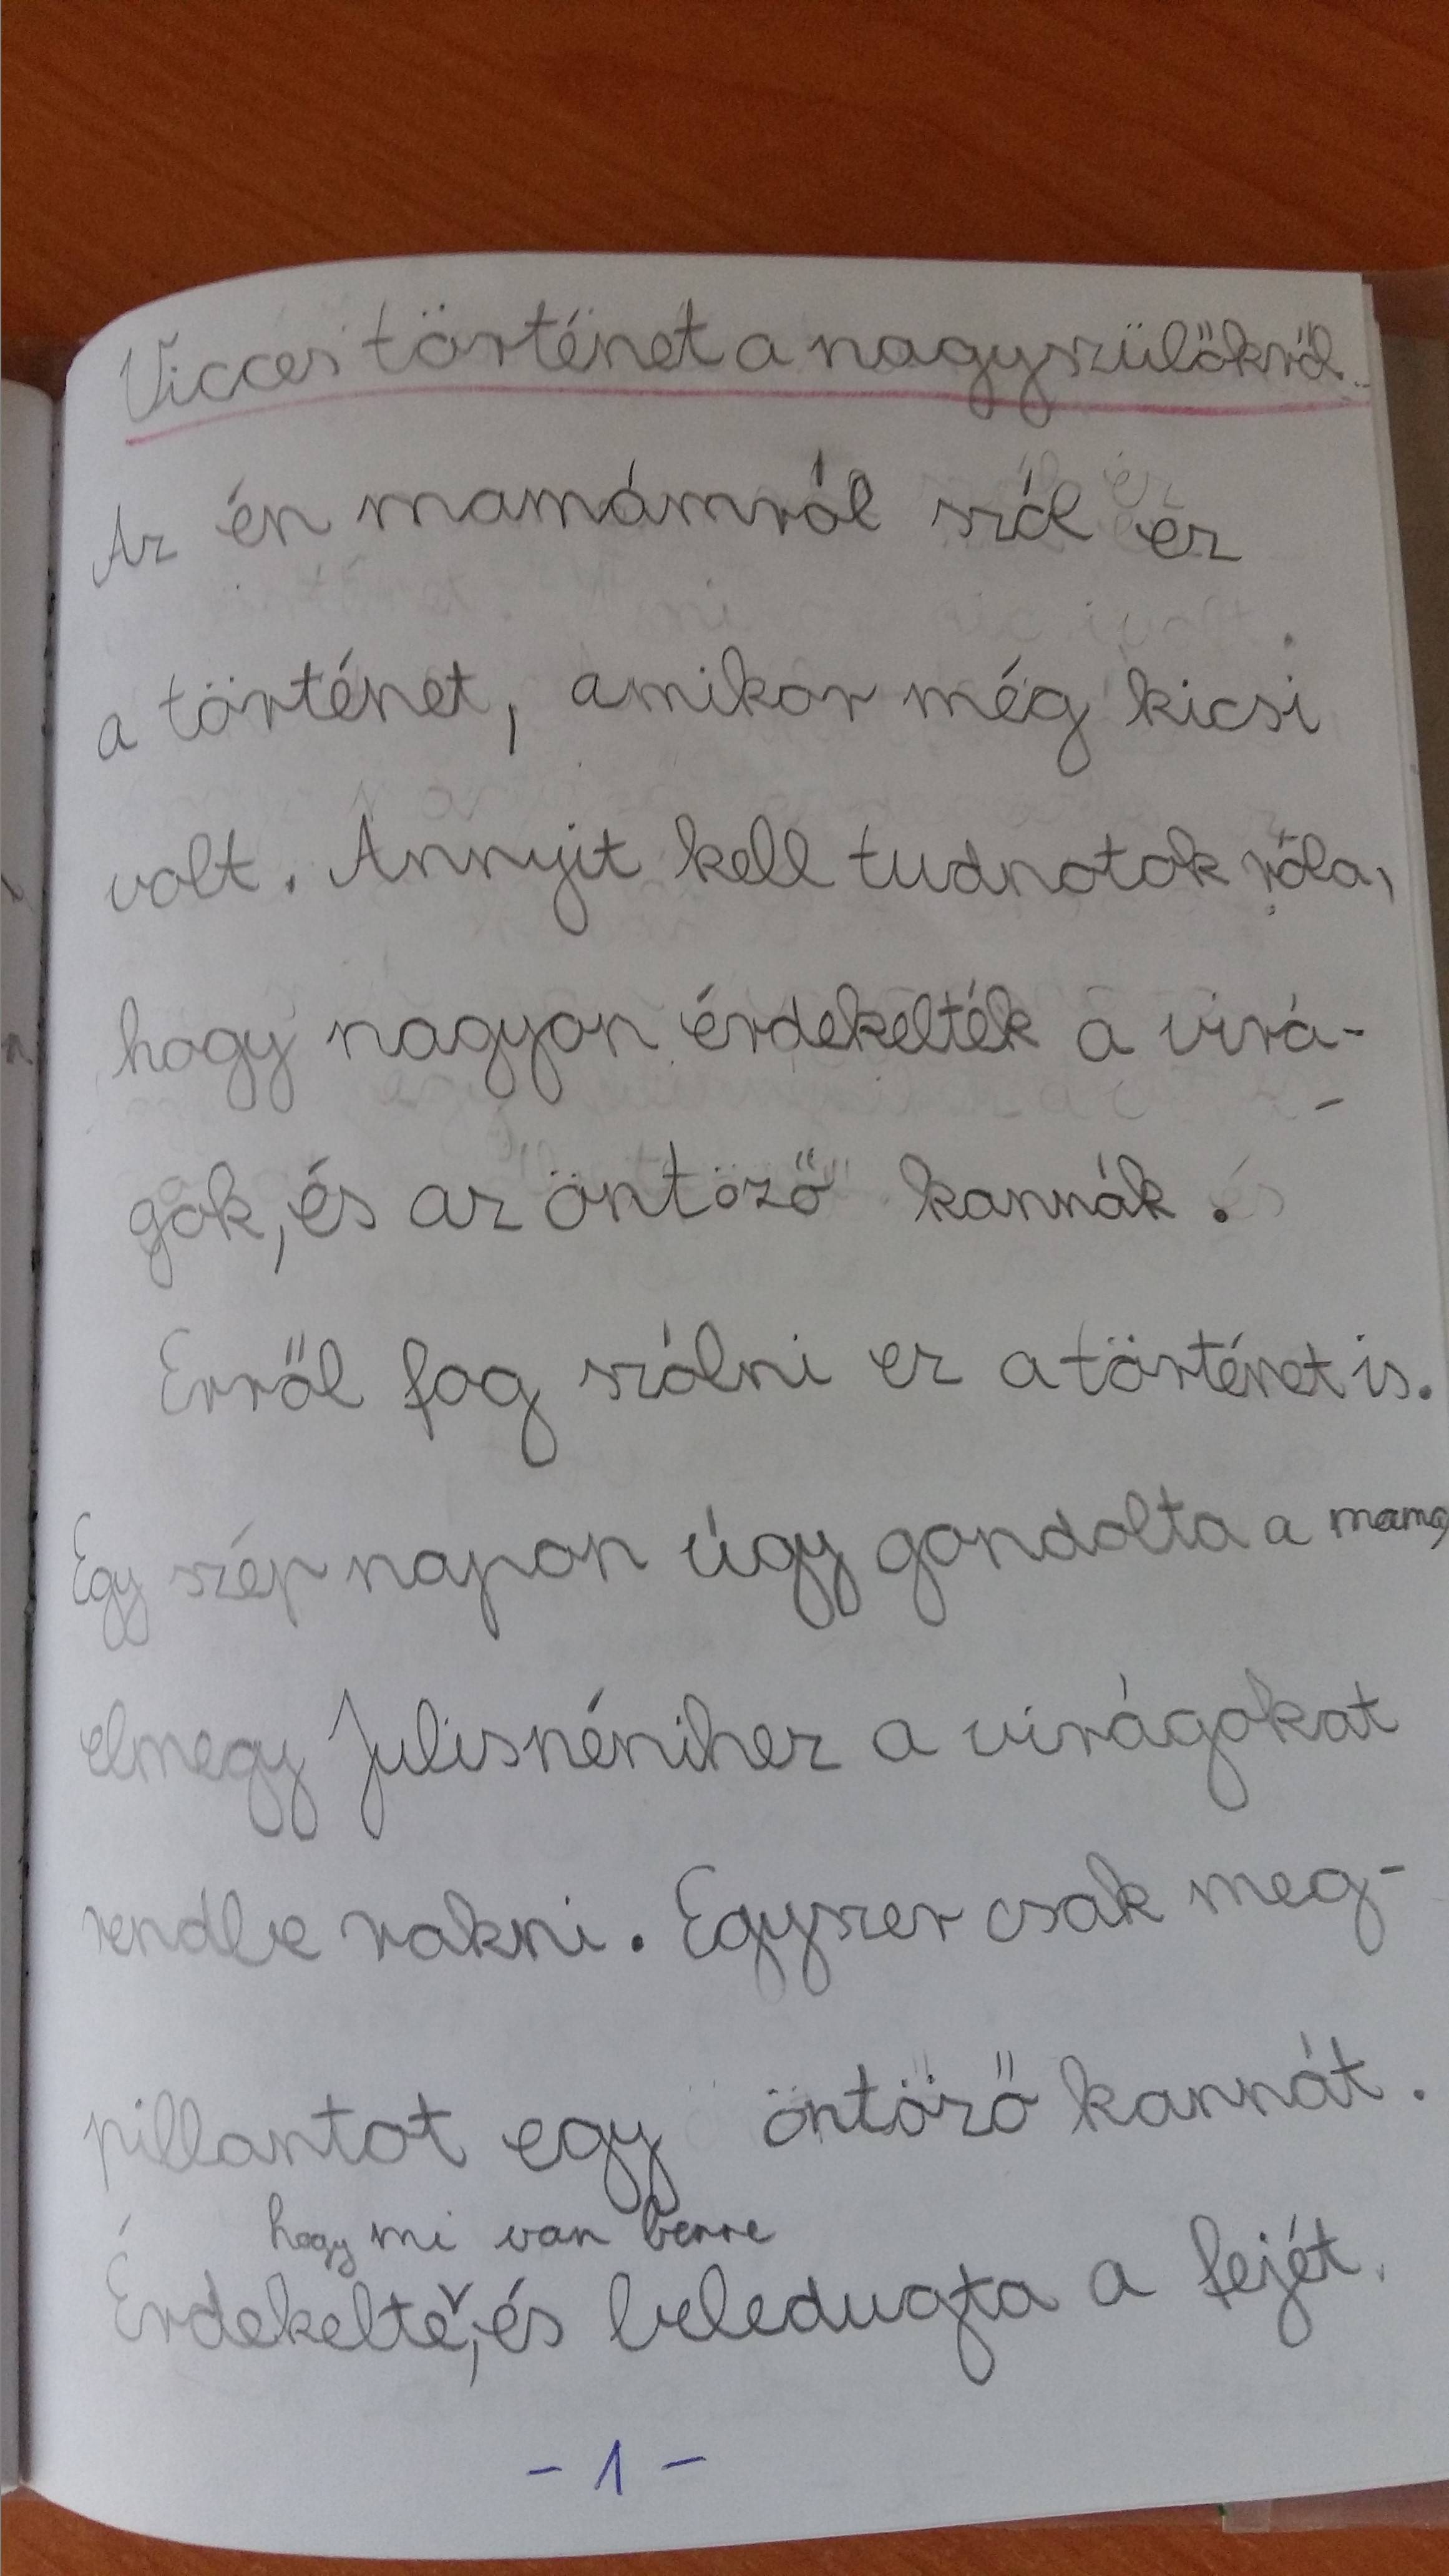 Vicces történet a nagyszülőkről.
Az én mamámról szól ez
a történet, amikor még kicsi
volt. Annyit kell tudnotok róla,
hogy nagyon érdekelték a virá-
gok, és az öntöző kannák.
Erről fog szólni ez a történet is.
Egy szép napon úgy gondolta a mama,
elmegy Julisnénihez a virágokat
rendbe rakni. Egyszer csak meg-
pillantot egy öntöző kannát.
hogy mi van benne
Érdekelte, és beledugta a fejét.
- 1 -